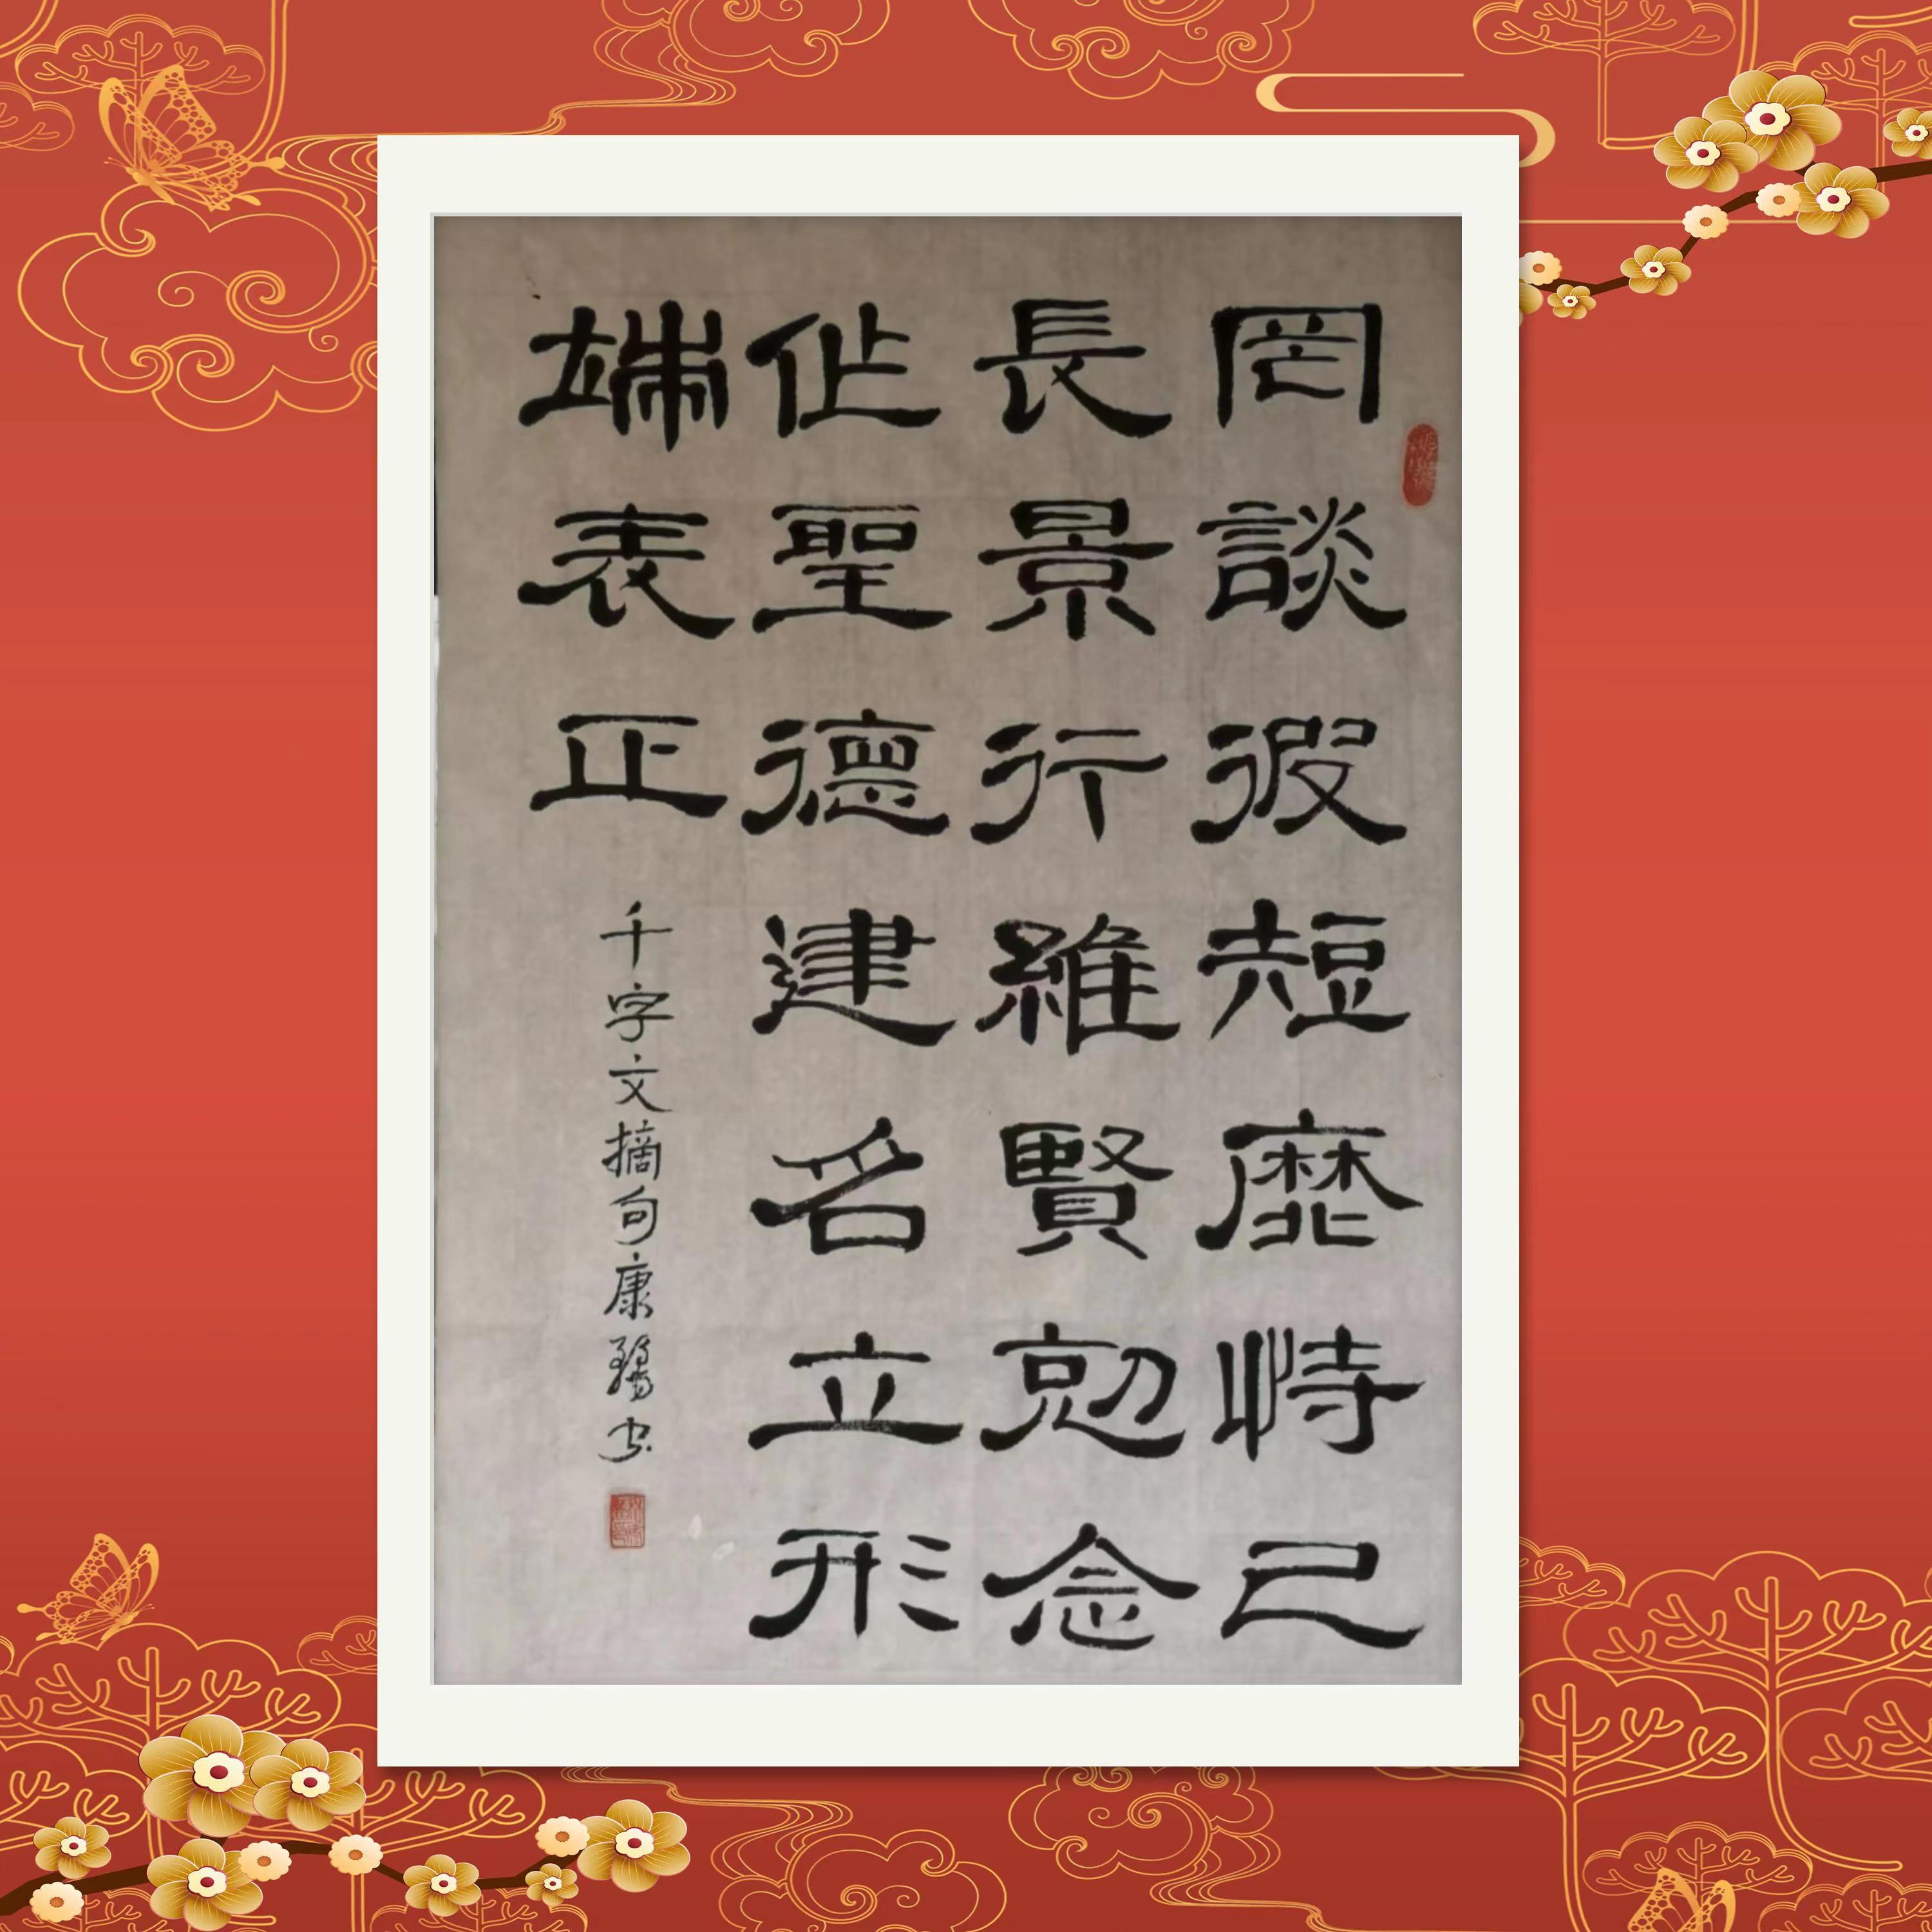 罔談彼短靡恃己
長景行維賢剋念
作聖德建名立形
端表正
千字文摘句康